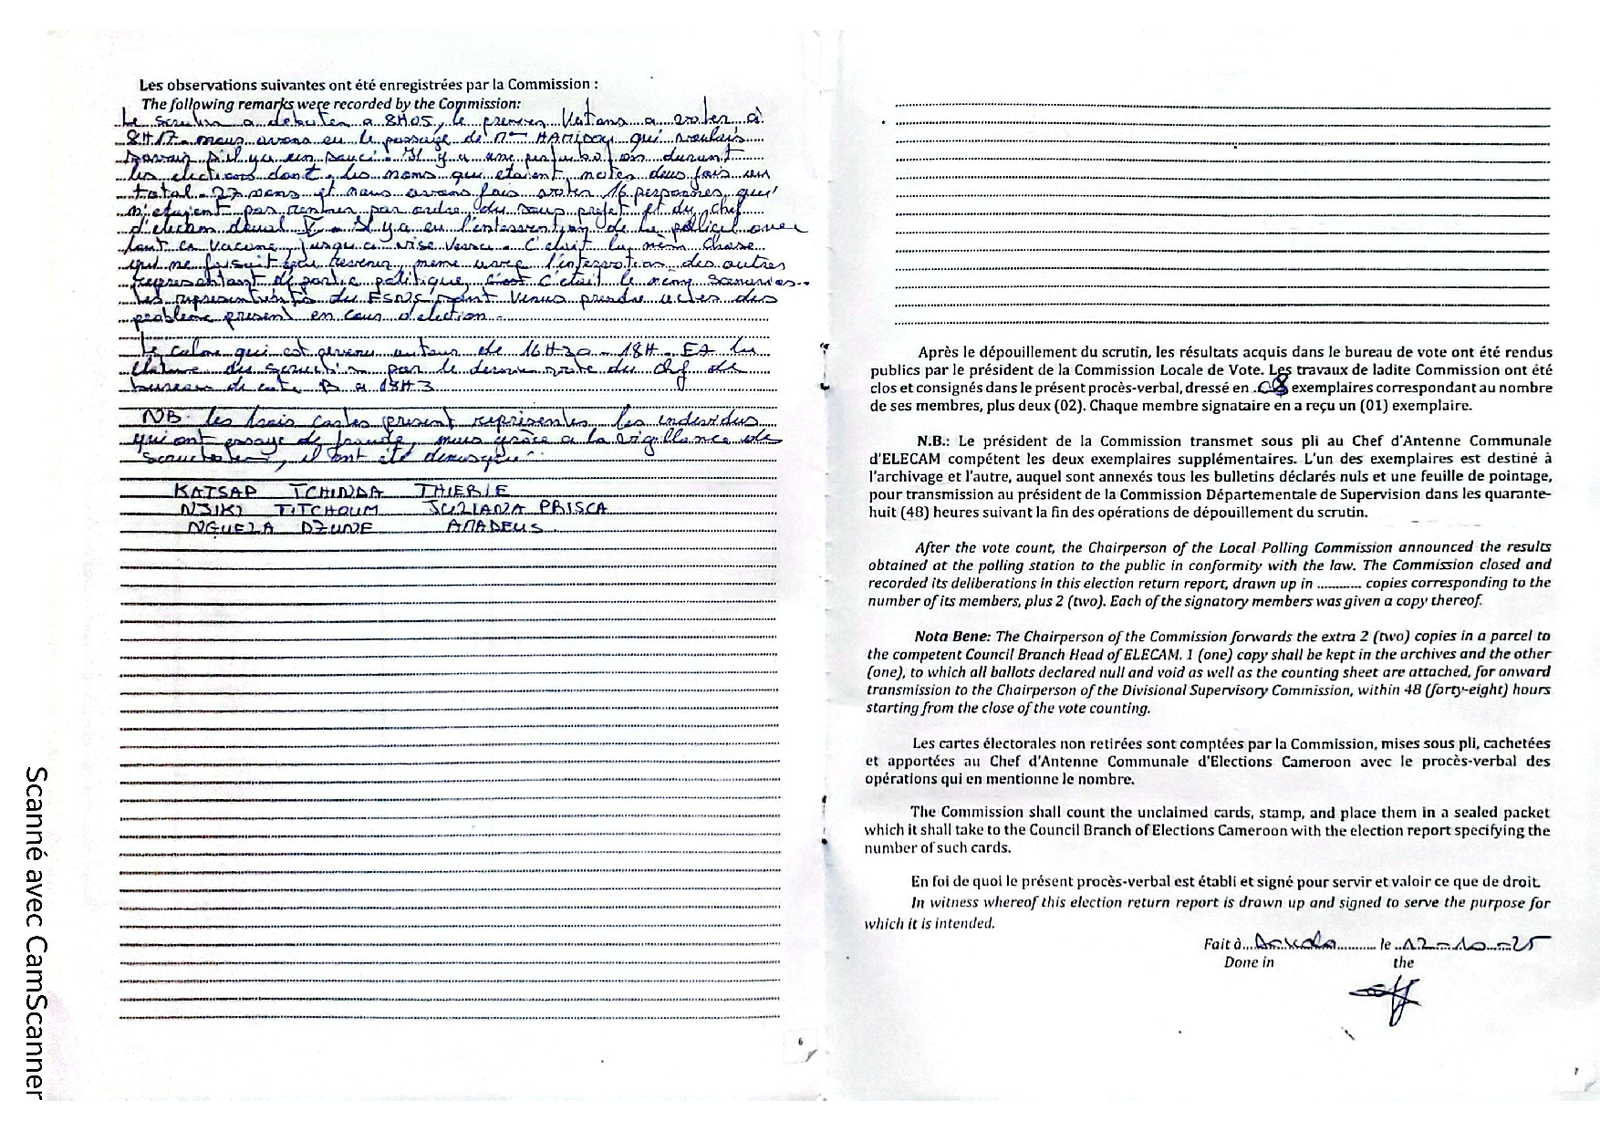 Les observations suivantes ont été enregistrées par la Commission :
The following remarks were recorded by the Commission:
Le scrutin a debuter a 8H05, le premier Votans a voter à
8H17. nous avons eu le passage de Mme HAMIDOU qui voulais
savoir s'il ya un souci. Il y a une durant
les elections dont les noms qui etaient notés deux fois au
total 27 noms et nous avons fais voter 16 personnes qui
n'etaient pas par ordre du sous prefet et du chef
d'election Il y a eu l'intervention de la police avec
tout ce vacarme jusqu'a vise versa. C'etait la mem chose
qui ne faisait que revenir meme avec l'intervation des autres
representant de partie politique, c'etait le mem scenarios.
Les représentants du FSNC sont venus prendre actes des
problème present en cour d'election.
Le calme qui est revenu autour de 16H30 - 18H. Et la
cloture du scrutin par le dernier vote du chef de
bureau de vote B a 18H3
NB: les trois cartes present représentes les individus
qui ont essayé de fraude, mais grâce a la vigillance des
scrutateurs, il ont été démasqué.
KATSAP TCHINDA THIERIE
NJIKI TITCHOUM JULIANA PRISCA
NGUELA DZUNE AMADEUS
6
Après le dépouillement du scrutin, les résultats acquis dans le bureau de vote ont été rendus
publics par le président de la Commission Locale de Vote. Les travaux de ladite Commission ont été
clos et consignés dans le présent procès-verbal, dressé en 08 exemplaires correspondant au nombre
de ses membres, plus deux (02). Chaque membre signataire en a reçu un (01) exemplaire.
N.B.: Le président de la Commission transmet sous pli au Chef d'Antenne Communale
d'ELECAM compétent les deux exemplaires supplémentaires. L'un des exemplaires est destiné à
l'archivage et l'autre, auquel sont annexés tous les bulletins déclarés nuls et une feuille de pointage,
pour transmission au président de la Commission Départementale de Supervision dans les quarante-
huit (48) heures suivant la fin des opérations de dépouillement du scrutin.
After the vote count, the Chairperson of the Local Polling Commission announced the results
obtained at the polling station to the public in conformity with the law. The Commission closed and
recorded its deliberations in this election return report, drawn up in ............ copies corresponding to the
number of its members, plus 2 (two). Each of the signatory members was given a copy thereof.
Nota Bene: The Chairperson of the Commission forwards the extra 2 (two) copies in a parcel to
the competent Council Branch Head of ELECAM. 1 (one) copy shall be kept in the archives and the other
(one), to which all ballots declared null and void as well as the counting sheet are attached, for onward
transmission to the Chairperson of the Divisional Supervisory Commission, within 48 (forty-eight) hours
starting from the close of the vote counting.
Les cartes électorales non retirées sont comptées par la Commission, mises sous pli, cachetées
et apportées au Chef d'Antenne Communale d'Elections Cameroon avec le procès-verbal des
opérations qui en mentionne le nombre.
The Commission shall count the unclaimed cards, stamp, and place them in a sealed packet
which it shall take to the Council Branch of Elections Cameroon with the election report specifying the
number of such cards.
En foi de quoi le présent procès-verbal est établi et signé pour servir et valoir ce que de droit.
In witness whereof this election return report is drawn up and signed to serve the purpose for
which it is intended.
Fait à Douala le 12-10-25
Done in the
7
Scanné avec CamScanner